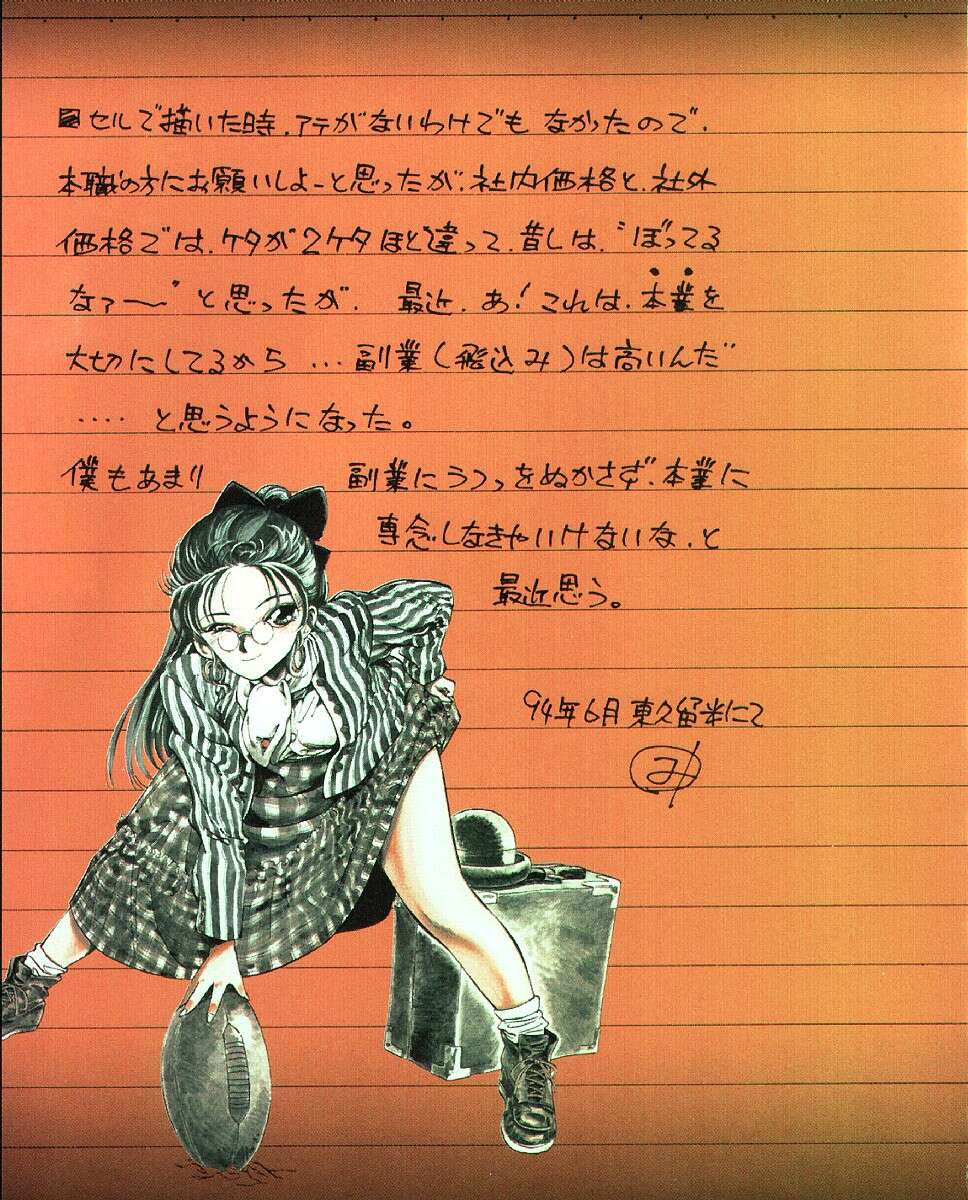 セルで描いた時.アテがないわけでもなかったので.
本職の方にお願いしよーと思ったが.社内価格と.社外
価格では.ケタが2ケタほど違って.昔しは.〝ぼってる
なァ〜〟と思ったが. 最近.あ!これは.本業を
大切にしてるから …副業(飛込み)は高いんだ
‥‥と思うようになった。
僕もあまり 副業にうつつをぬかさず.本業に
専念しなきゃいけないな.と
最近思う。
94年6月 東久留米にて
み